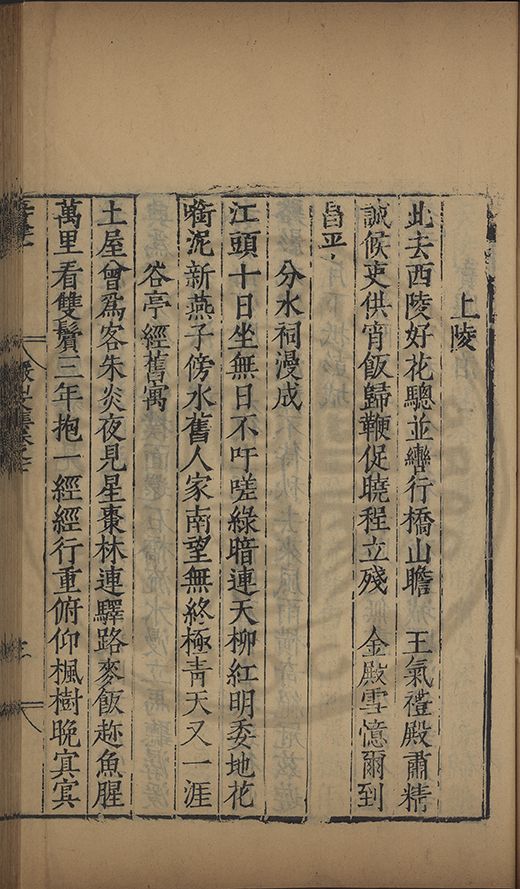 上陵
此去西陵好花驄並轡行橋山瞻 王氣禮殿肅精
誠候吏供宵飯歸鞭促曉程立殘 金殿雪憶爾到
昌平
分水祠漫成
江頭十日坐無日不吁嗟綠暗連天柳紅明委地花
啣泥新燕子傍水舊人家南望無終極青天又一涯
谷亭經舊寓
土屋曾爲客朱炎夜見星棗林連驛路麥飯趂魚腥
萬里看雙鬢三年抱一經經行重俯仰楓樹晚冥冥